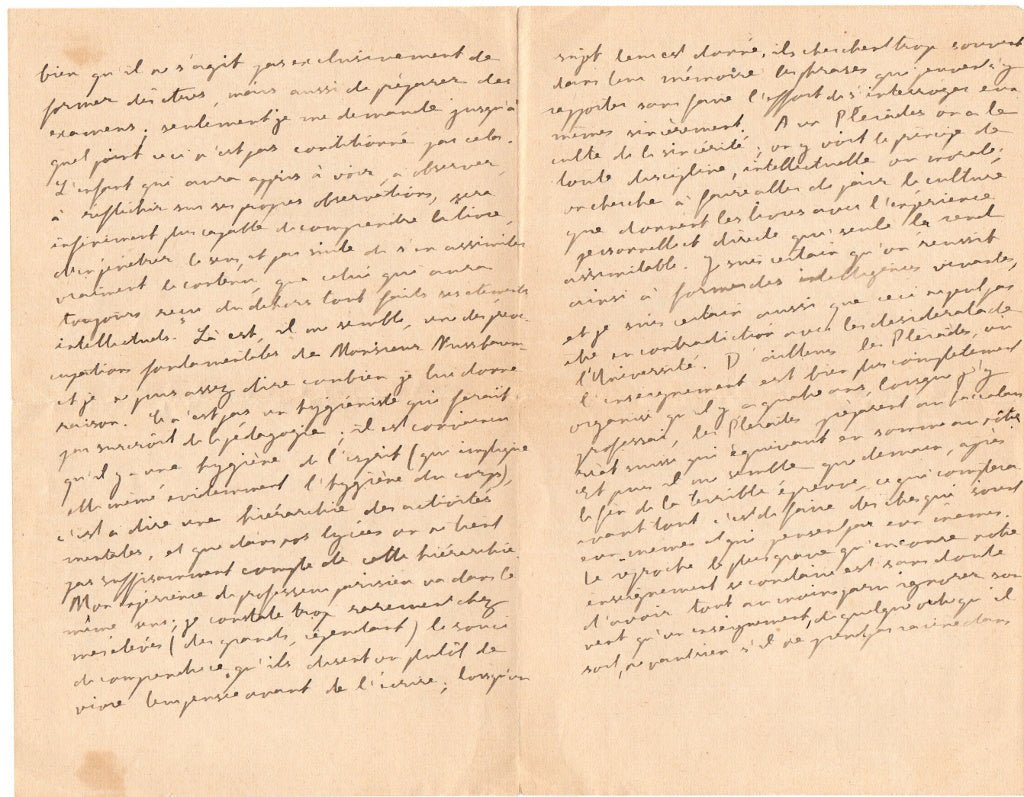 bien qu'il ne s'agit pas exclusivement de
former des êtres, mais aussi de préparer des
examens; seulement je me demande jusqu'à
quel point ceci n'est pas conditionné par cela.
L'enfant qui aura appris à voir, à observer,
à réfléchir sur ses propres observations, sera
infiniment plus capable de comprendre le livre,
d'en pénétrer le sens, et par suite de s'en assimiler
vraiment le contenu, que celui qui aura
toujours reçu du dehors tout faits ses éléments
intellectuels. Là est, il me semble, une des préoc-
cupations fondamentales de Monsieur Nussbaum
et je ne puis assez dire combien je lui donne
raison. Ce n'est pas un hygiéniste qui ferait
par surcroît de la pédagogie; il est convaincu
qu'il y a une hygiène de l'esprit (qui implique
elle même évidemment l'hygiène du corps),
c'est à dire une hiérarchie des activités
mentales, et que dans nos lycées on ne tient
pas suffisamment compte de cette hiérarchie.
Mon expérience de professeur parisien va dans le
même sens; je constate trop rarement chez
mes élèves (des grands, cependant) le souci
de comprendre ce qu'ils disent ou plutôt de
vivre leur pensée avant de l'écrire; lorsqu'un
sujet leur est donné, ils cherchent trop souvent
dans leur mémoire les phrases qui peuvent s'y
rapporter sans faire l'effort de s'interroger eux
mêmes sincèrement. Aux Pléiades on a le
culte de la sincérité; on y voit le principe de
toute discipline, intellectuelle ou morale;
on cherche à faire aller de pair la culture
que donnent les livres avec l'expérience
personnelle et directe qui seule la rend
assimilable. Je suis certain qu'on réussit
ainsi à former des intelligences vivantes,
et je suis certain aussi que ceci ne peut pas
être en contradiction avec les desiderata de
l'Université. D'ailleurs les Pléiades, où
l'enseignement est bien plus complètement
organisé qu'il y a quatre ans, lorsque j'y
professais, les Pléiades préparent au baccalau
réat suisse qui équivaut en somme au nôtre
et puis il me semble que demain, après
la fin de la terrible épreuve, ce qui comptera
avant tout c'est de faire des êtres qui soient
eux-mêmes et qui pensent par eux mêmes.
Le reproche le plus grave qu'encoure notre
enseignement secondaire est sans doute
d'avoir tout au moins paru ignorer sou
vent qu'un enseignement, de quelque ordre qu'il
soit, ne vaut rien s'il ne prend pas racine dans